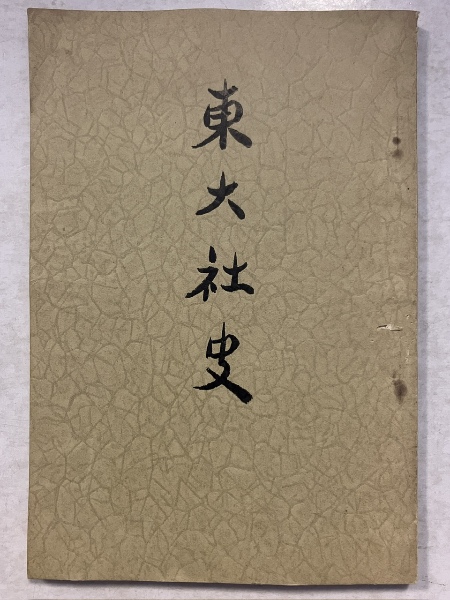 東大社史